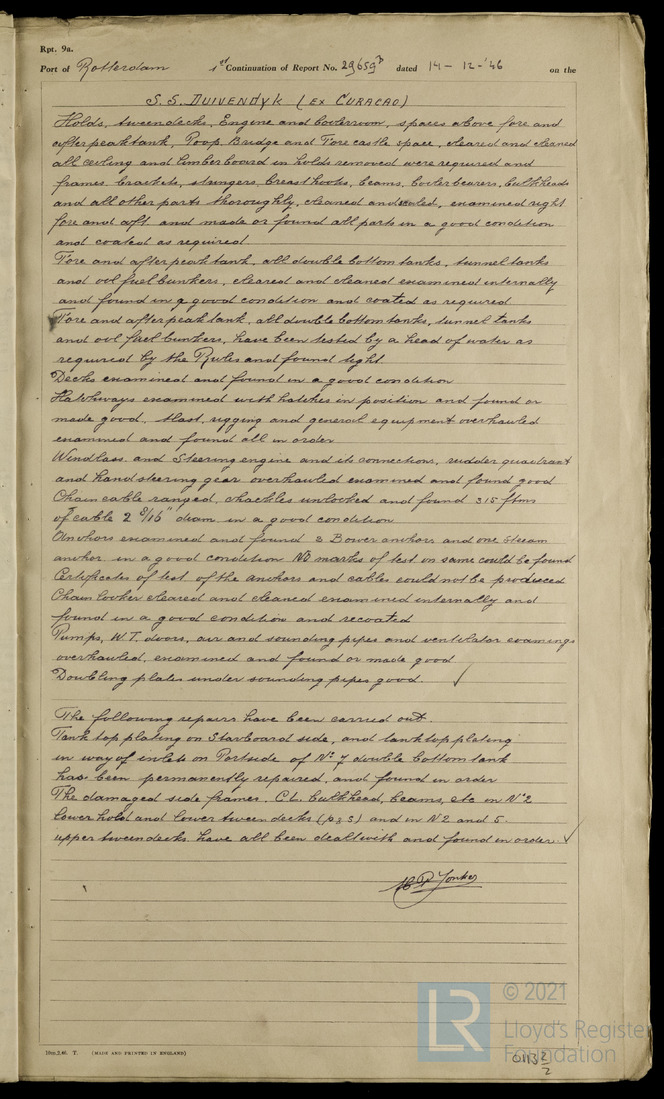 Rpt. 9a.
Port of Rotterdam 1st Continuation of Report No. 29659D dated 14-12-'46 on the
S.S. DUIVENDYK (EX CURACAO)
Holds, tweendecks, Engine and boilerroom, spaces above fore and
after peaktank, Poop, Bridge and Fore castle space, cleared and cleaned
all ceiling and limberboard in holds removed were required and
frames, brackets, stringers, breasthooks, beams, boilerbearers, bulkheads
and all other parts thoroughly, cleaned and scaled, examined right
fore and aft and made or found all parts in a good condition
and coated as required.
Fore and after peak tank, all double bottom tanks, tunnel tanks
and oil fuel bunkers, cleared and cleaned examined internally
and found in a good condition and coated as required
Fore and after peak tank, all double bottom tanks, tunnel tanks
and oil fuel bunkers, have been tested by a head of water as
required by the Rules and found tight.
Decks examined and found in a good condition
Hatchways examined with hatches in position and found or
made good. Mast, rigging and general equipment overhauled
examined and found all in order
Windlass and Steering engine and its connections, rudder quadrant
and hand steering gear overhauled examined and found good
Chain cable ranged, shackles unlocked and found 315 ftms
of cable 2 5/16" diam in a good condition
Anchors examined and found 2 Bower anchors and one Steam
anchor in a good condition No marks of test on same could be found
Certificates of test of the anchors and cables could not be produced
Chain locker cleared and cleaned examined internally and
found in a good condition and recoated
Pumps, W.T. doors, air and sounding pipes and ventilator coamings
overhauled, examined and found or made good
Doubling plates under sounding pipes good. ✓
The following repairs have been carried out.
Tank top plating on Starboard side, and tanktop plating
in way of inlets on Portside of No 7 double bottom tank
has been permanently repaired, and found in order
The damaged side frames, C.L. bulkhead, beams, etc in No 2
lower hold and lower tween decks (p&s) and in No 2 and 5.
upper tweendecks have all been dealt with and found in order. ✓
Jonker
10m,2,46. T. (MADE AND PRINTED IN ENGLAND)
LR © 2021
Lloyd's Registe
Foundation
0113 2/2